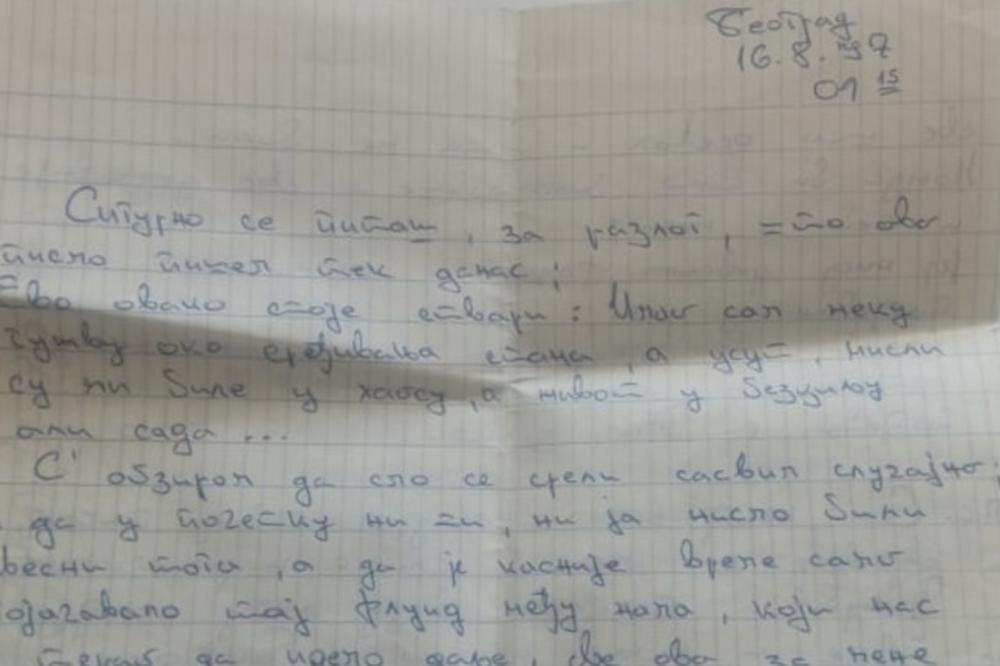 Београд
16.8.'97
01 15
Сигурно се питаш, за разлог, што ово
писмо пишем тек данас;
Ево овако стоје ствари: Имао сам неку
гужву око сређивања стана, а успут, мисли
су ми биле у хаосу, а живот у безциљу
али сада ...
С' обзиром да смо се срели сасвим случајно,
да у почетку ни ти, ни ја нисмо били
свесни тога, а да је касније време само
појачавало тај флуид међу нама, који нас
да идемо даље, све ово за мене